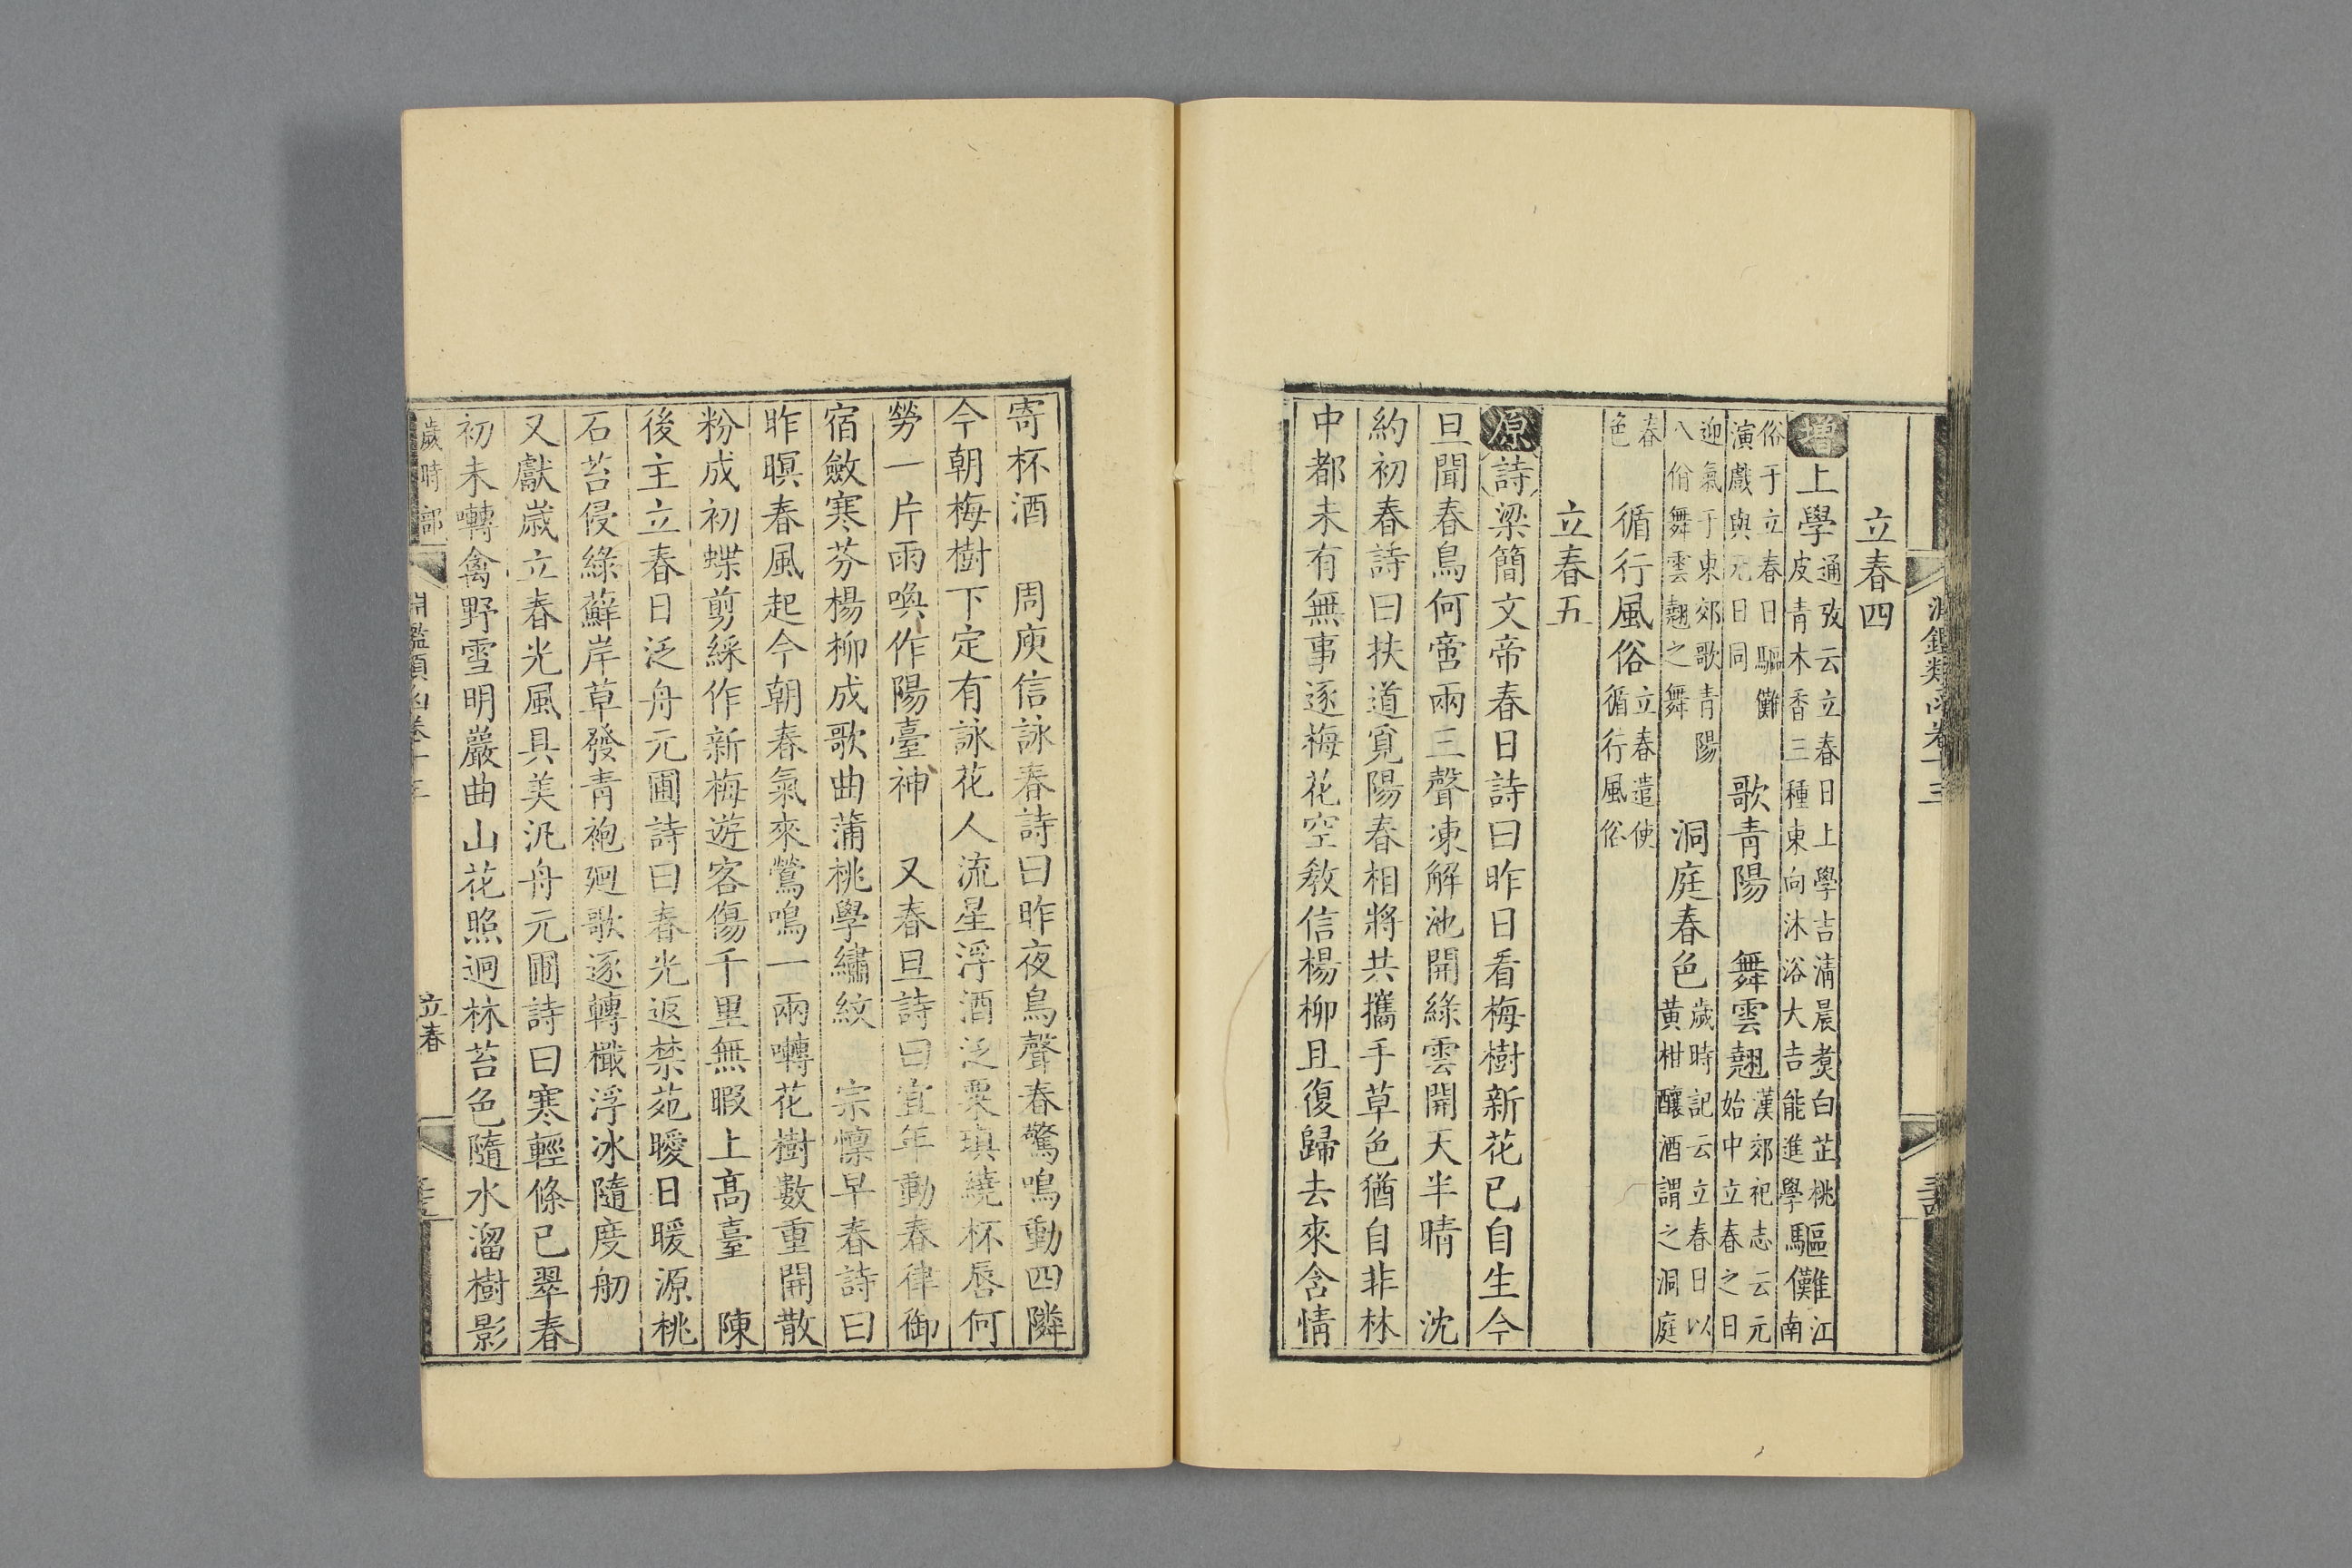 淵鑑類函卷十三
立春四
增上學通攷云立春日上學吉淸晨煑白芷桃皮青木香三種東向沐浴大吉能進學驅儺江南
俗于立春日驅儺演戲與元日同歌青陽舞雲翹漢郊祀志云元始中立春之日
迎氣于東郊歌青陽八佾舞雲翹之舞洞庭春色歲時記云立春日以黃柑釀酒謂之洞庭
春色循行風俗立春遣使循行風俗
立春五
原詩梁簡文帝春日詩曰昨日看梅樹新花已自生今
旦聞春鳥何啻兩三聲凍解池開綠雲開天半晴 沈
約初春詩曰扶道覓陽春相將共攜手草色猶自非林
中都未有無事逐梅花空敎信楊柳且復歸去來含情
寄杯酒 周庾信詠春詩曰昨夜鳥聲春驚鳴動四隣
今朝梅樹下定有詠花人流星浮酒泛粟瑱繞杯唇何
勞一片雨喚作陽臺神 又春旦詩曰宜年動春律御
宿斂寒芬楊柳成歌曲蒲桃學繡紋 宗懍早春詩曰
昨暝春風起今朝春氣來鶯鳴一兩囀花樹數重開散
粉成初蝶剪綵作新梅遊客傷千里無暇上高臺 陳
後主立春日泛舟元圃詩曰春光返禁苑曖日暖源桃
石苔侵綠蘚岸草發青袍廻歌逐轉檝浮冰隨度舠
又獻歲立春光風具美汎舟元圃詩曰寒輕條已翠春
初未囀禽野雪明巖曲山花照迥林苔色隨水溜樹影
歲時部
立春